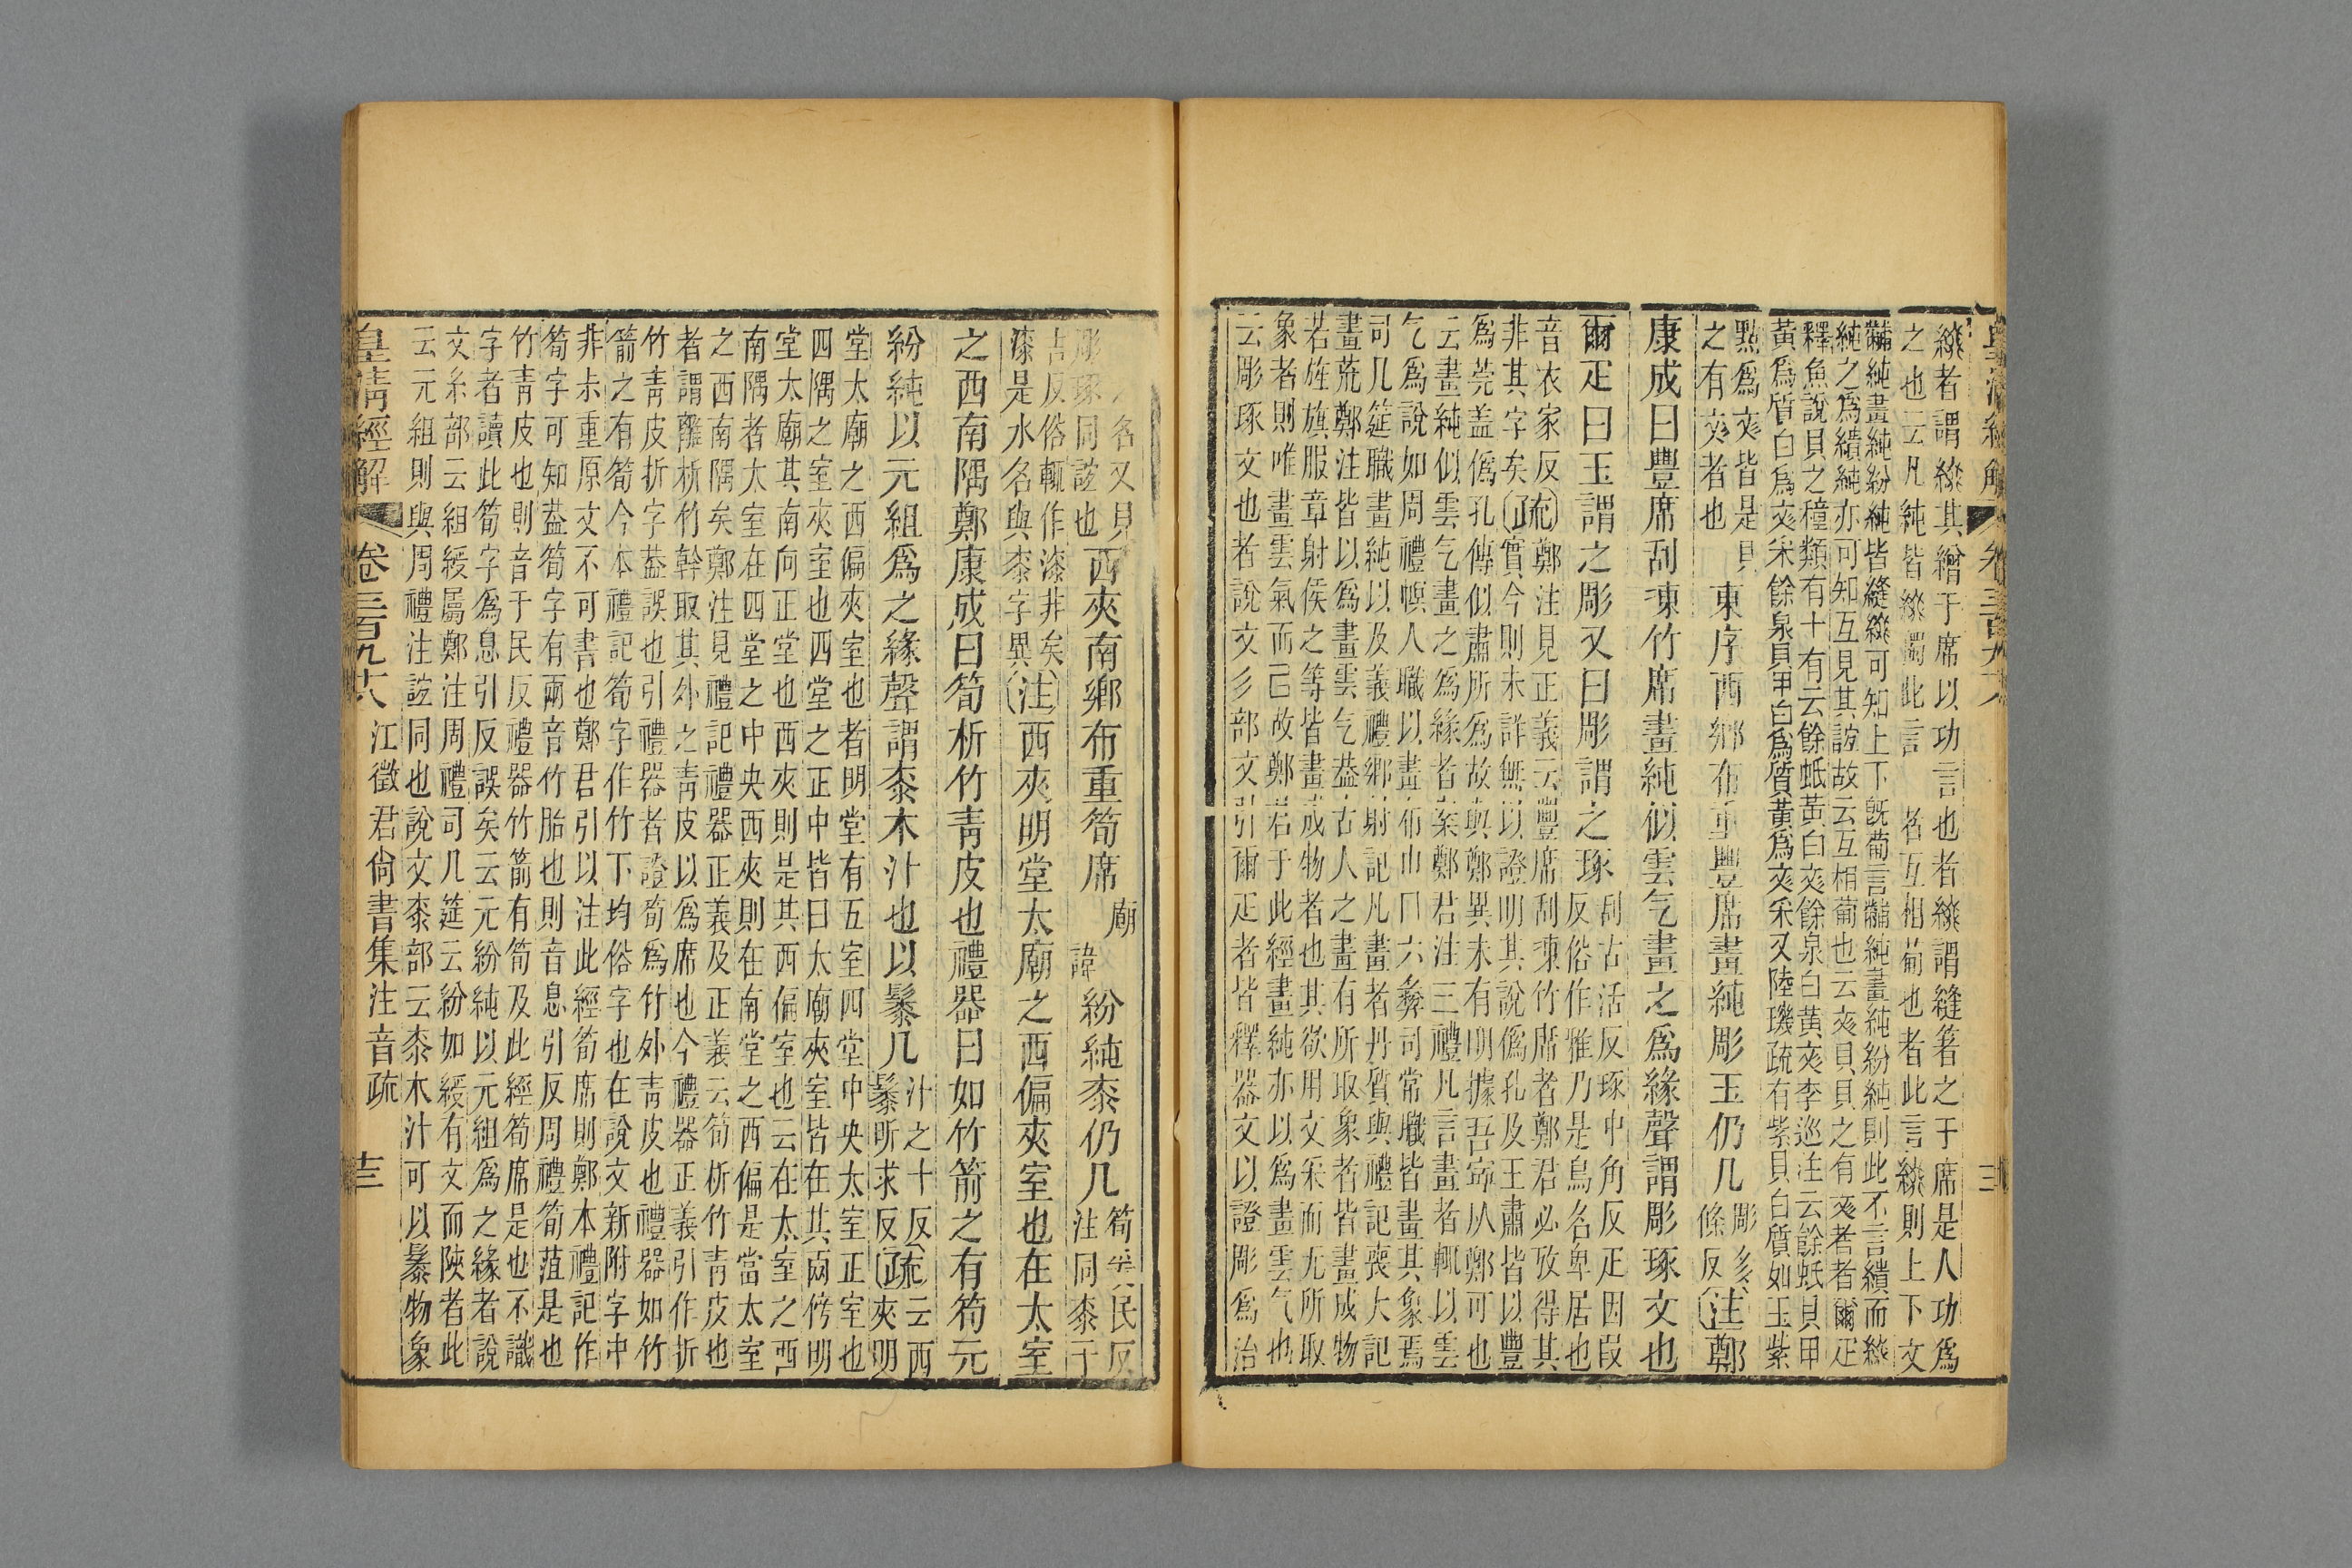 緣者謂緣其繒于席以功言也者緣謂縫箸之于席是人功爲
之也云凡純皆緣 此言 者互相葡也者此言緣則上下文
黼純畫純紛純皆縫緣可知上下旣葡言黼純畫純紛純則此不言繢而緣
純之爲繢純亦可知互見其誼故云互相葡也云文貝貝之有文者者爾疋
釋魚說貝之種類有十有云餘蚳黃白文餘泉白黃文李巡注云餘蚳貝甲
黃爲質白爲文采餘泉貝甲白爲質黃爲文采又陸璣疏有紫貝白質如玉紫
點爲文皆是貝
之有文者也
東序西鄉布重豐席畫純彫玉仍几
彫彡
條反
注鄭
康成曰豐席刮湅竹席畫純似雲气畫之爲緣聲謂彫琢文也
爾疋曰玉謂之彫又曰彫謂之琢
刮古活反琢中角反疋因叚
反俗作雅乃是鳥名卑居也
音衣家反疏鄭注見正義云豐席刮湅竹席者鄭君必攷得其
非其字矣 實今則未詳無以證明其說僞孔及王肅皆以豐
爲莞盖僞孔傳似肅所爲故與鄭異未有明據吾寧从鄭可也
云畫純似雲气畫之爲緣者案鄭君注三禮凡言畫者輒以雲
气爲說如周禮幎人職以畫布巾冂六彝司常職皆畫其象焉
司几筵職畫純以及義禮鄉射記凡畫者丹質與禮記喪大記
畫荒鄭注皆以爲畫雲气葢古人之畫有所取象者皆畫成物
若旌旗服章射侯之等皆畫成物者也其欲用文采而无所取
象者則唯畫雲氣而已故鄭君于此經畫純亦以爲畫雲气也
云彫琢文也者說文彡部文引爾疋者皆釋器文以證彫爲治
名又見
彫琢同誼也
西夾南鄉布重筍席
廟
諱
紛純桼仍几
筍 民反
注同桼于
吉反俗輒作漆非矣
漆是水名與桼字異
注西夾明堂太廟之西偏夾室也在太室
之西南隅鄭康成曰筍析竹靑皮也禮器曰如竹箭之有筍元
紛純以元組爲之緣聲謂桼木汁也以髤几
汁之十反
髤昕求反
疏云西
夾明
堂太廟之西偏夾室也者明堂有五室四堂中央太室正室也
四隅之室夾室也西堂之正中皆曰太廟夾室皆在其兩傍明
堂太廟其南向正堂也西夾則是其西偏室也云在太室之西
南隅者太室在四堂之中央西夾則在南堂之西偏是當太室
之西南隅矣鄭注見禮記禮器正義及正義云筍析竹靑皮也
者謂離析竹幹取其外之靑皮以爲席也今禮器正義引作折
竹靑皮折字葢誤也引禮器者證筍爲竹外靑皮也禮器如竹
箭之有筍今本禮記筍字作竹下均俗字也在說文新附字中
非尗重原文不可書也鄭君引以注此經筍席則鄭本禮記作
筍字可知葢筍字有兩音竹胎也則音息引反周禮筍菹是也
竹靑皮也則音于民反禮器竹箭有筍及此經筍席是也不識
字者讀此筍字爲息引反誤矣云元紛純以元組爲之緣者說
文糸部云組綬屬鄭注周禮司几筵云紛如綬有文而陝者此
云元組則與周禮注誼同也說文桼部云桼木汁可以髤物象
皇淸經解 卷三百九十八 江徵君尙書集注音疏 十三